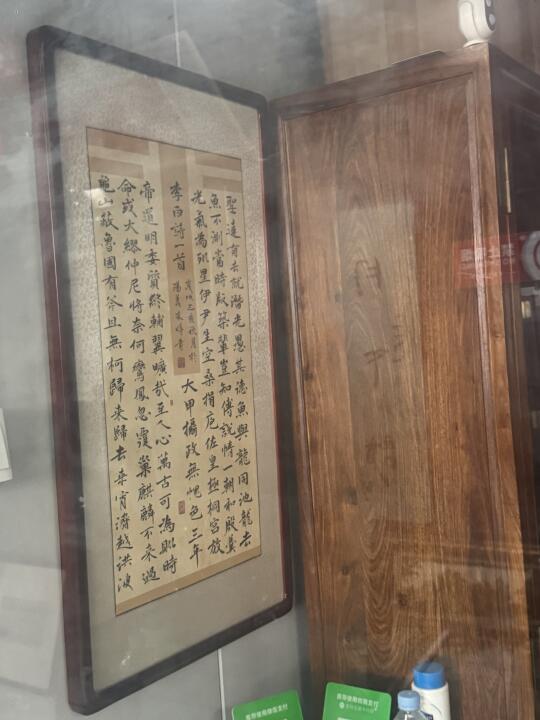 聖達有去就潛光愚其德魚與龍同池龍去
魚不測當時版築輩豈知傅說情一朝和殷羹
光氣為列星伊尹生空桑捐庖佐皇極桐宮放
大甲攝政無愧色三年
帝道明委質終輔翼曠哉至人心萬古可為則時
命或大繆仲尼將奈何鸞鳳忽覆巢麒麟不來過
龜山蔽魯國有斧且無柯歸來歸去來宵濟越洪波
李白詩一首
歲次己亥秋月於
書
推荐使用微信支付
推荐使用微信支付